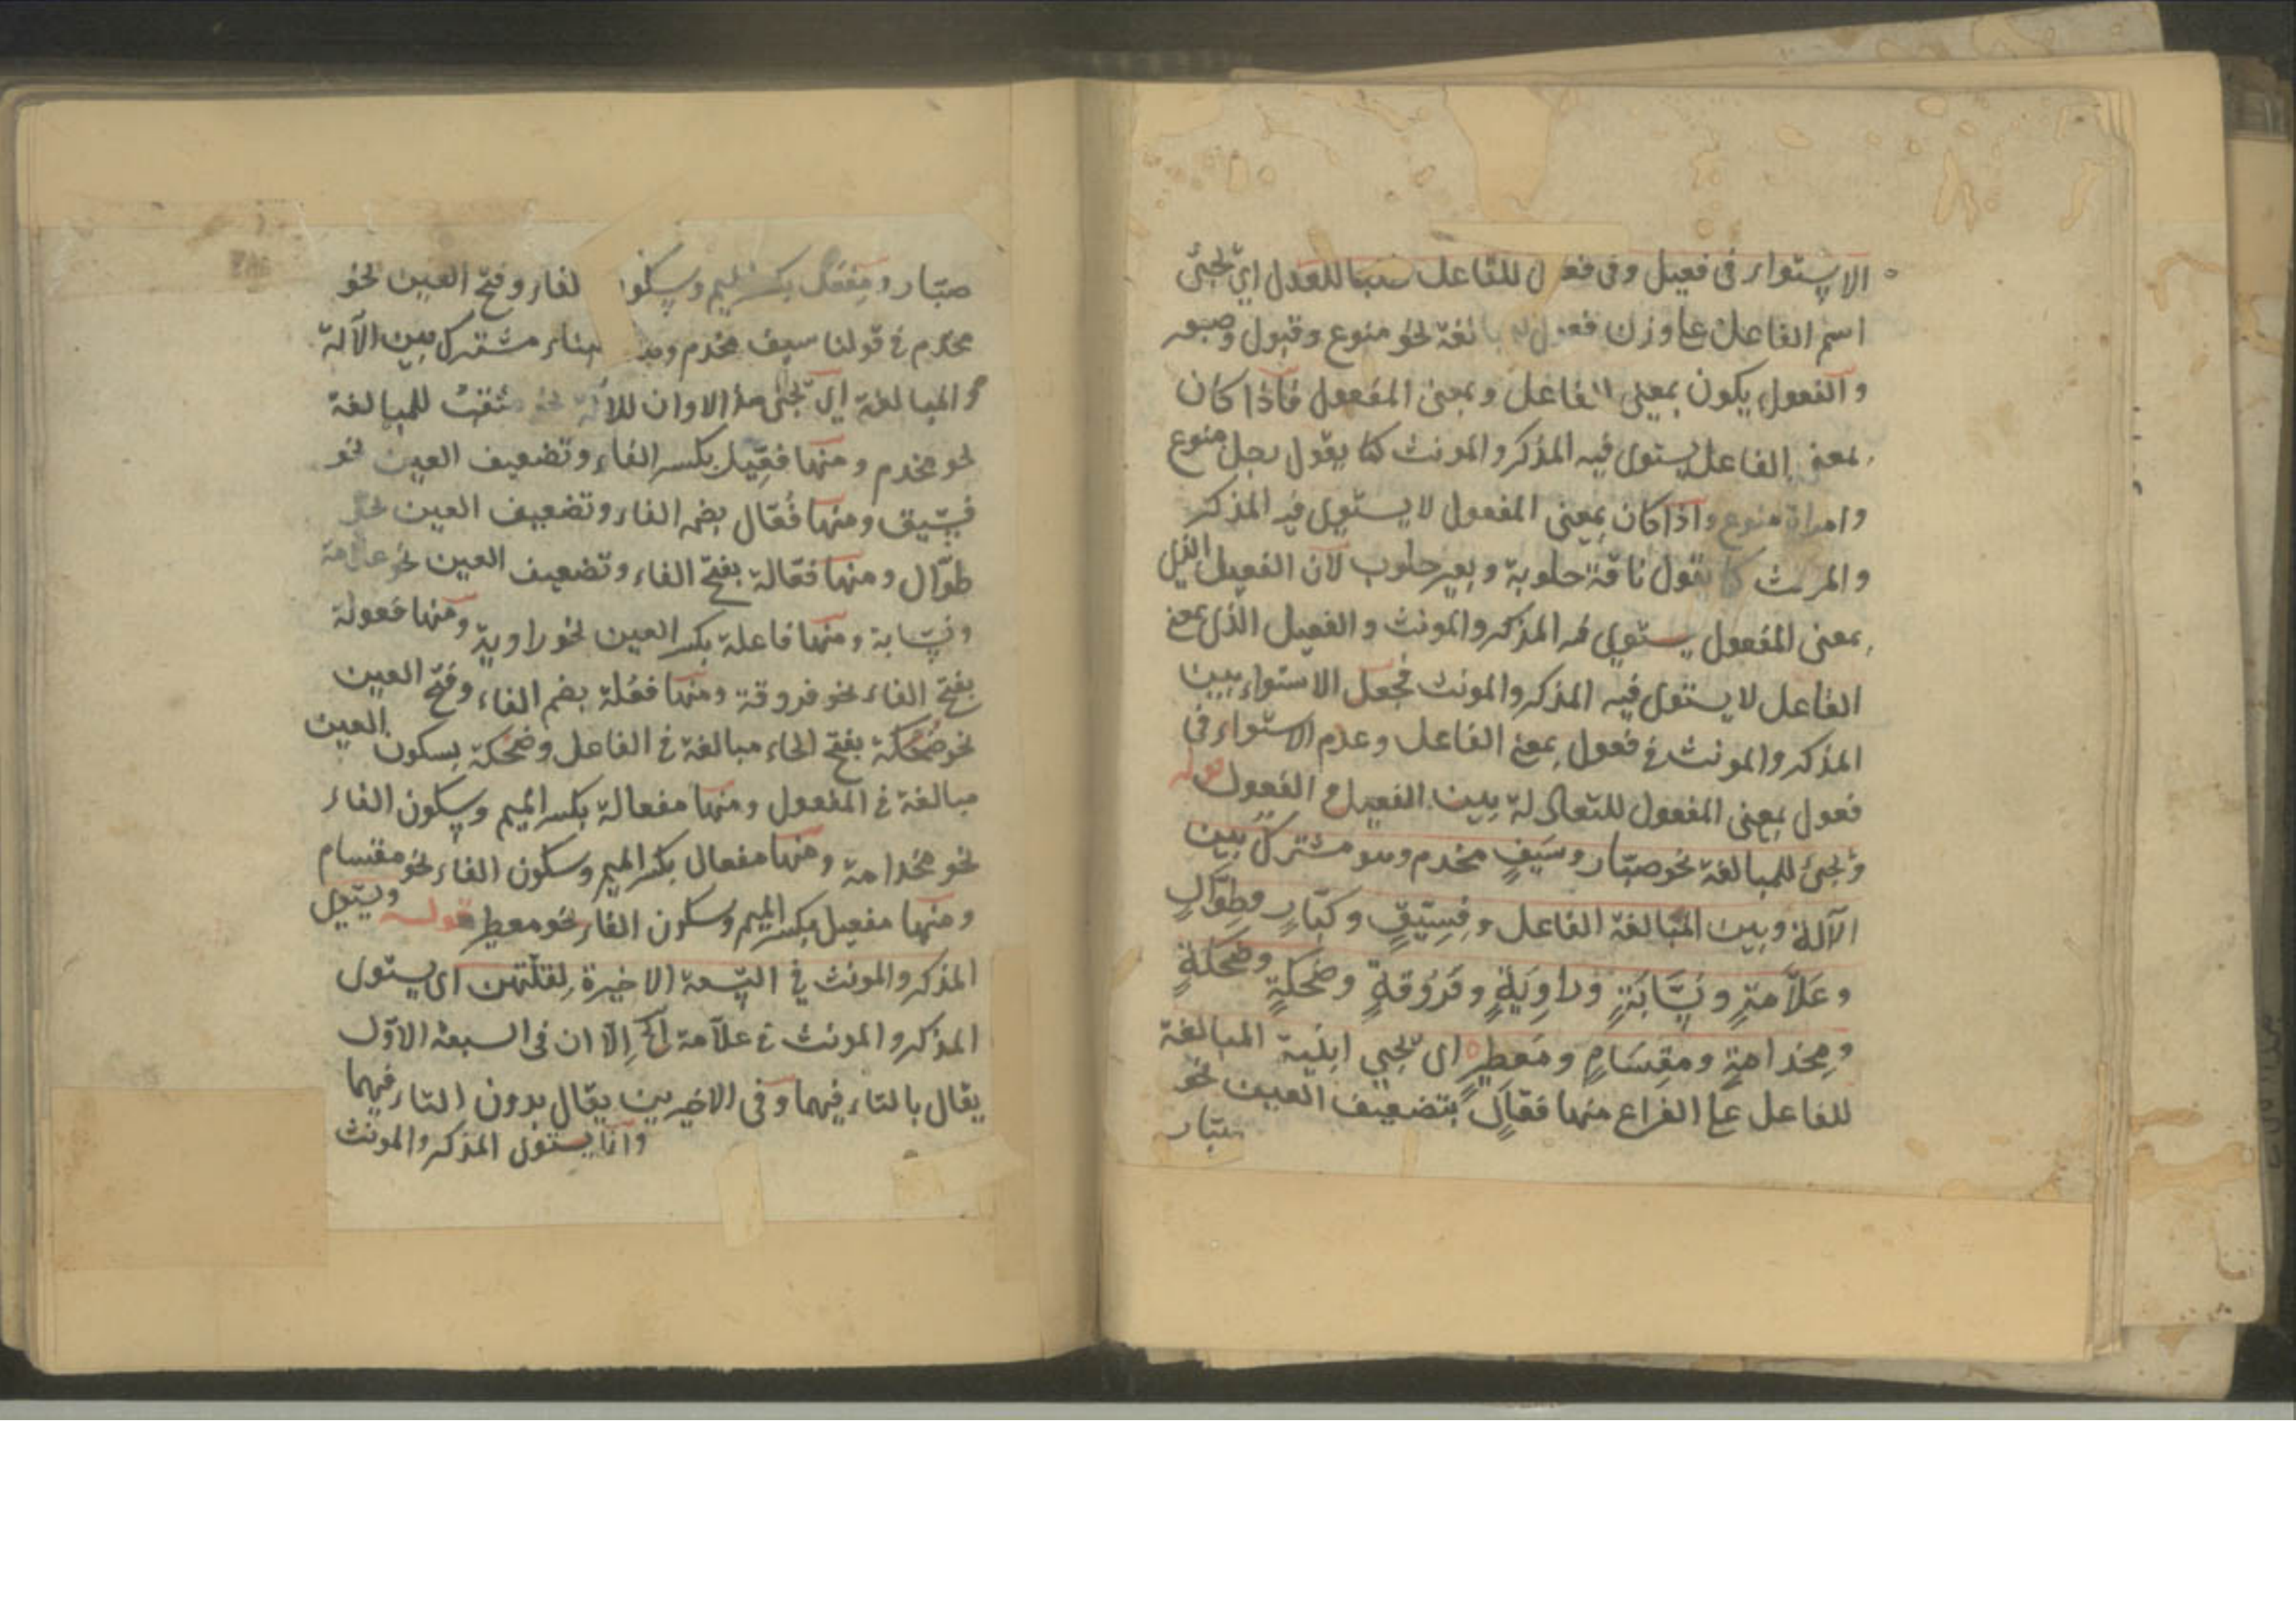 الاستواء فى فعيل وفى فعول للفاعل طلبا للعدل اى تجئ
اسم الفاعل على وزن فعول للمبالغة نحو منوع وقبول وصبور
والفعول يكون بمعنى الفاعل وبمعنى المفعول فاذا كان
بمعنى الفاعل يستوى فيه المذكر والمونث كما يقول رجل منوع
وامراة منوع واذا كان بمعنى المفعول لا يستوى فيه المذكر
والمونث كما يقول ناقة حلوبة وبعير حلوب لان الفعيل الذى
بمعنى المفعول يستوى فيه المذكر والمونث والفعيل الذى بمعنى
الفاعل لا يستوى فيه المذكر والمونث فجعل الاستواء بين
المذكر والمونث فى فعول بمعنى الفاعل وعدم الاستواء فى
فعول بمعنى المفعول للتعادلة بين الفعيل والفعول قوله
وتجئ للمبالغة نحو صبّار وسَيفٍ مخدم وهو مشترك بين
الآلة وبين المبالغة الفاعل وفِسِّيقٍ وكبّارٍ وطِوّالٍ
وعَلاَّمةٍ ونَسَّابَةٍ وراوِيَةٍ وفَرُوقةٍ وضُحَكةٍ وضُحْكةٍ
ومِخدامةٍ ومِقسَامٍ ومِعطيرٍ اى تجيى ابنية المبالغة
للفاعل على انواع منها فعّال بتضعيف العين نحو
صبّار
صبّار ومِفعَل بكسر الميم وسكون الفاء وفتح العين نحو
مخدم فى قولنا سيف مخدم وهذا البناء مشترك بين الآلة
والمبالغة اى تجئ هذا الاوان للآلة نحو مثقب للمبالغة
نحو مخدم ومنها فعِّيل بكسر الفاء وتضعيف العين نحو
فسّيق ومنها فُعّال بضم الفاء وتضعيف العين نحو
طوّال ومنها فعّالة بفتح الفاء وتضعيف العين نحو علامة
ونسّابة ومنها فاعلة بكسر العين نحو راوية ومنها فعولة
بفتح الفاء نحو فروقة ومنها فعُلة بضم الفاء وفتح العين
نحو ضُحَكة بفتح الحاء مبالغة فى الفاعل وضحْكة بسكون العين
مبالغة فى المفعول ومنها مفعالة بكسر الميم وسكون الفاء
نحو مخدامة ومنها مفعال بكسر الميم وسكون الفاء نحو مقسام
ومنها مفعيل بكسر الميم وسكون الفاء نحو معطير قوله ويستوى
المذكر والمونث فى التسعة الاخيرة لقلّتهن اى يستوى
المذكر والمونث فى علاّمة الخ إلاّ ان فى السبعة الاوّل
يقال بالتاء فيهما وفى الاخيرين يقال بدون التاء فيهما
وانما يستوى المذكر والمونث